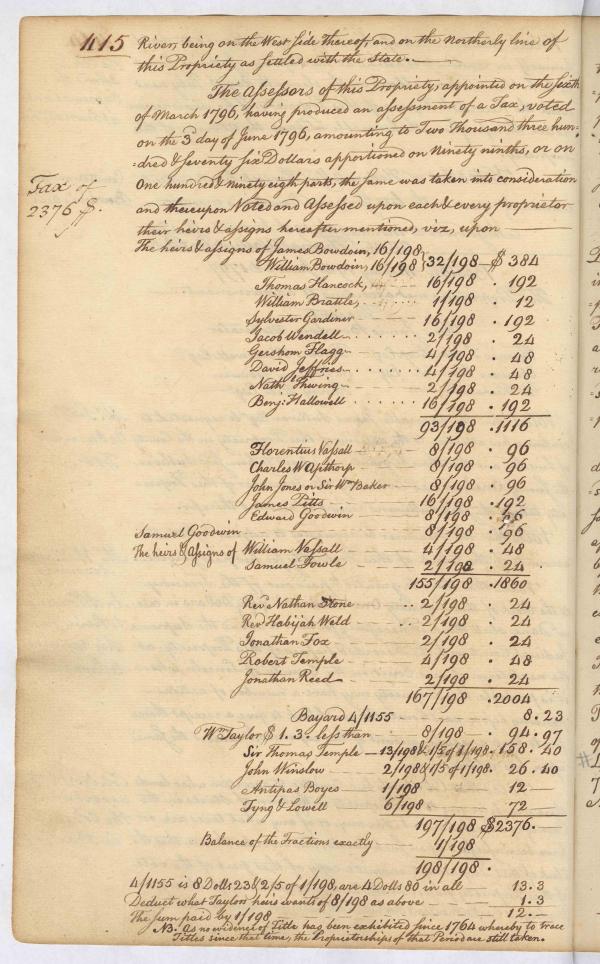 415 River, being on the West side thereof, and on the Northerly line of
this Propriety as settled with the State.
The Assessors of this Propriety, appointed on the Sixth
of March 1796, having produced an assessment of a Tax, voted
on the 3d day of June 1796, amounting to Two Thousand three hun=
=dred & seventy six Dollars apportioned on Ninety ninths, or on
Tax of
2376 $.
One hundred & ninety eigth parts, the same was taken into consideration
and thereupon Noted and Assessed upon each & every proprietor
their heirs & assigns hereafter mentioned, viz, upon
The heirs & assigns of James Bowdoin, 16/198
William Bowdoin, 16/198 } 32/198 $ 384
Thomas Hancock, 16/198 . 192
William Brattle, 1/198 . 12
Sylvester Gardiner 16/198 . 192
Jacob Wendell 2/198 . 24
Gershom Flagg 4/198 . 48
David Jeffries 4/198 . 48
Nath Thwing 2/198 . 24
Benj: Hallowell 16/198 . 192
93/198 . 1116
Florentius Vassall 8/198 . 96
Charles W Apthorp 8/198 . 96
John Jones or Sir Wm Baker 8/198 . 96
James Pitts 16/198 . 192
Edward Goodwin 8/198 . 96
Samuel Goodwin 8/198 . 96
The heirs & Assigns of William Vassall 4/198 . 48
Samuel Fowle 2/198 . 24
155/198 . 1860
Revd Nathan Stone 2/198 . 24
Revd Habijah Weld 2/198 . 24
Jonathan Fox 2/198 . 24
Robert Temple 4/198 . 48
Jonathan Reed 2/198 . 24
167/198 . 2004
Bayard 4/1155 8.23
Wm Taylor $ 1.3. less than 8/198 . 94.97
Sir Thomas Temple 13/198 & 1/5 of 1/198 . 158.40
John Winslow 2/198 & 1/5 of 1/198 . 26.40
Antipas Boyes 1/198 12
Tyng & Lowell 6/198 72
197/198 $2376.
Balance of the Fractions exactly 1/198
198/198 .
4/1155 is 8 Dolls 23 & 2/5 of 1/198, are 4 Dolls 80 in all 13.3
Deduct what Taylors heirs wants of 8/198 as above 1.3
The sum paid by 1/198 12.
NB. As no evidence of Title has been exhibited since 1764 whereby to trace
Titles since that time, the Proprietorships of that Period are still taken.